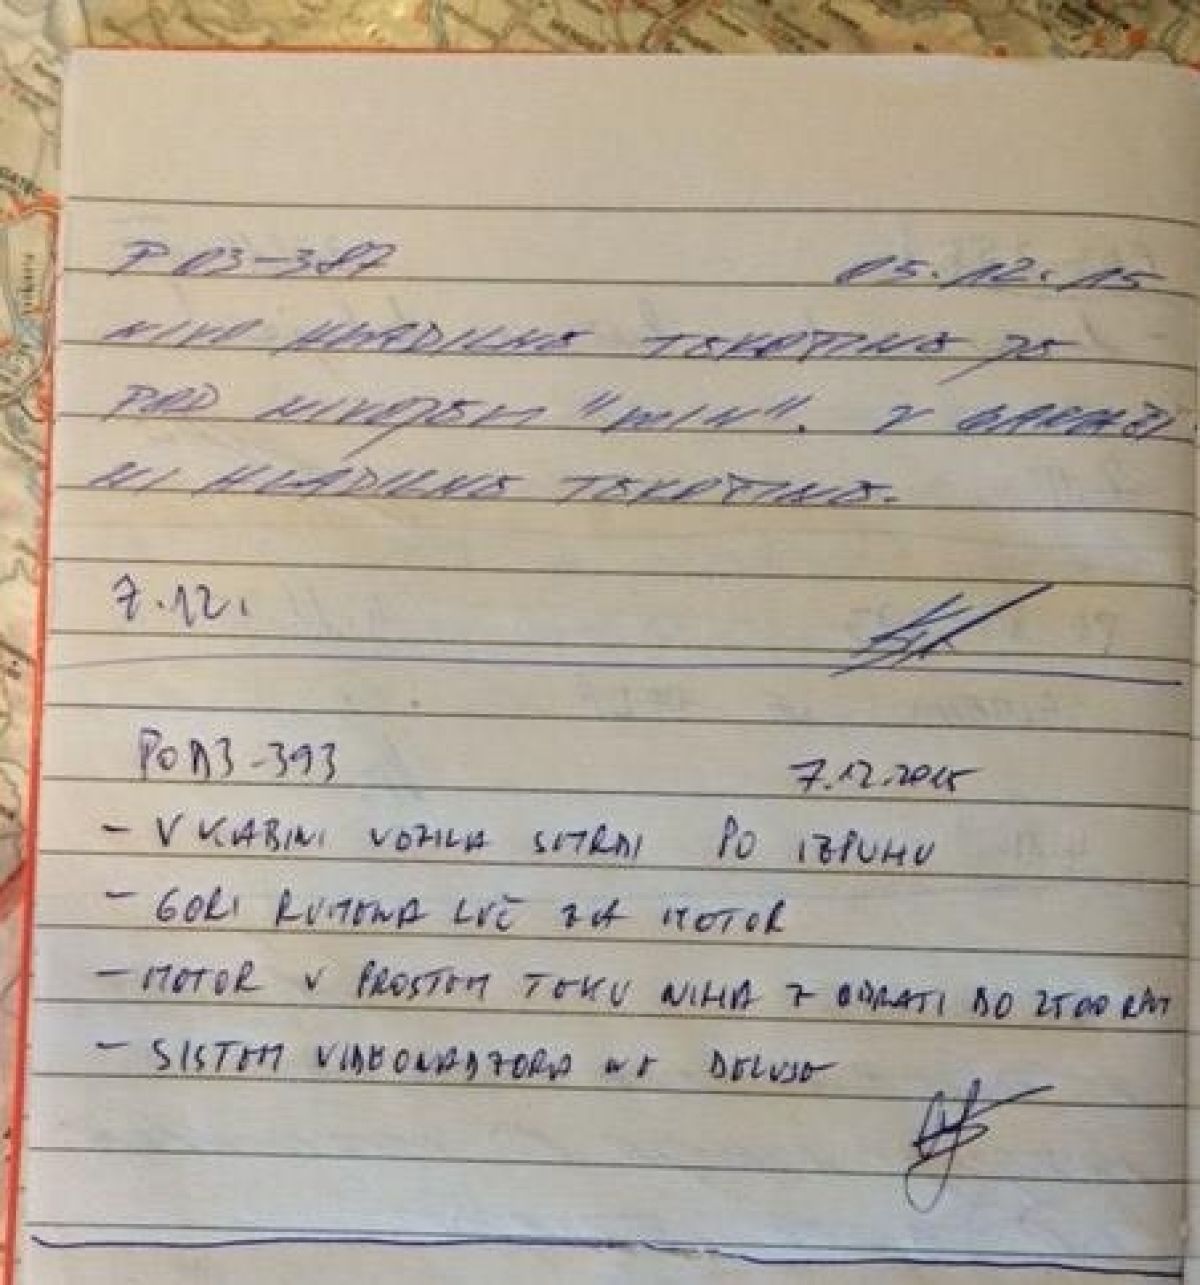 P 03-387 05.12.15
NIVO HLADILNE TEKOČINE JE
POD NIVOJEM "MIN". V GARAŽI
NI HLADILNE TEKOČINE.
7.12.
PO A3-393 7.12.2015
- V KABINI VOZILA SMRDI PO IZPUHU
- GORI RUMENA LUČ ZA MOTOR
- MOTOR V PROSTEM TEKU NIHA Z OBRATI DO 2500 RPM
- SISTEM VIDEONADZORA NE DELUJE